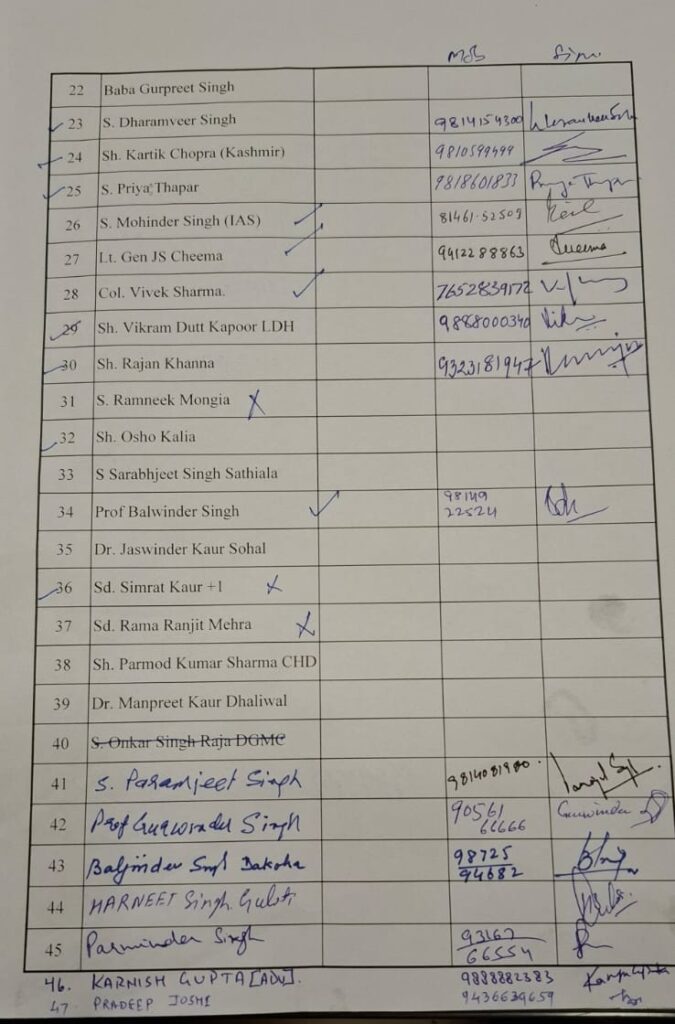 Mob Sign.
22 Baba Gurpreet Singh
23 S. Dharamveer Singh 9814154300
24 Sh. Kartik Chopra (Kashmir) 9810599499
25 S. Priya Thapar 9818601833 Priya Thapar
26 S. Mohinder Singh (IAS) 81461-52509
27 Lt. Gen JS Cheema 9412288863 Cheema
28 Col. Vivek Sharma. 7652839172
29 Sh. Vikram Dutt Kapoor LDH 9888000340
30 Sh. Rajan Khanna 9323181947
31 S. Ramneek Mongia X
32 Sh. Osho Kalia
33 S Sarabhjeet Singh Sathiala
34 Prof Balwinder Singh 98149
22524
35 Dr. Jaswinder Kaur Sohal
36 Sd. Simrat Kaur +1 X
37 Sd. Rama Ranjit Mehra X
38 Sh. Parmod Kumar Sharma CHD
39 Dr. Manpreet Kaur Dhaliwal
40 S. Onkar Singh Raja DGMC
41 S. Paramjeet Singh 9814081980.
42 Prof Gurwinder Singh 90561 Gurwinder
66666
43 Baljinder Singh Dakoha 98725
94682
44 HARNEET Singh Gulati
45 Parminder Singh 93167
66554
46. KARNISH GUPTA [ADV]. 9888882383
47. PRADEEP JOSHI 9436639659